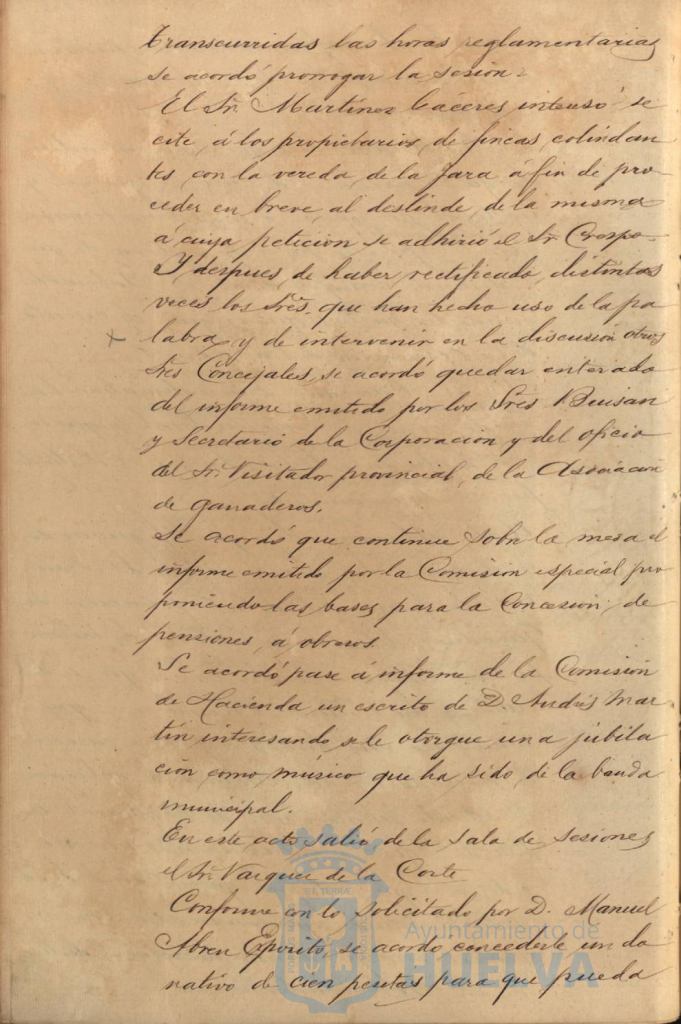 Transcurridas las horas reglamentarias
se acordó prorrogar la sesión.
El Sr. Martinez Cáceres interesó se
cite á los propietarios de fincas colindan
tes con la vereda de la Jara á fin de pro-
ceder en breve al deslinde de la misma
á cuya peticion se adhirió el Sr. Crespo.
Y despues de haber rectificado distintas
veces los Sres. que han hecho uso de la pa
labra y de intervenir en la discusión otros
Sres Concejales, se acordó quedar enterado
del informe emitido por los Sres Buisan
y Secretario de la Corporacion y del oficio
del Sr. Visitador provincial, de la Asociación
de ganaderos.
Se acordó que continue sobre la mesa el
informe emitido por la Comision especial pro
poniendo las bases para la Concesion de
pensiones á obreros.
Se acordó pase á informe de la Comisión
de Hacienda un escrito de D. Andrés Mar-
tín interesando se le otorgue una jubila
cion como músico que ha sido de la banda
municipal.
En este acto salió de la sala de sesiones
el Sr. Vazquez de la Corte
Conforme con lo solicitado por D. Manuel
Abreu Exposito, se acordo concederle un do
nativo de cien pesetas para que pueda
Ayuntamiento de
HUELVA